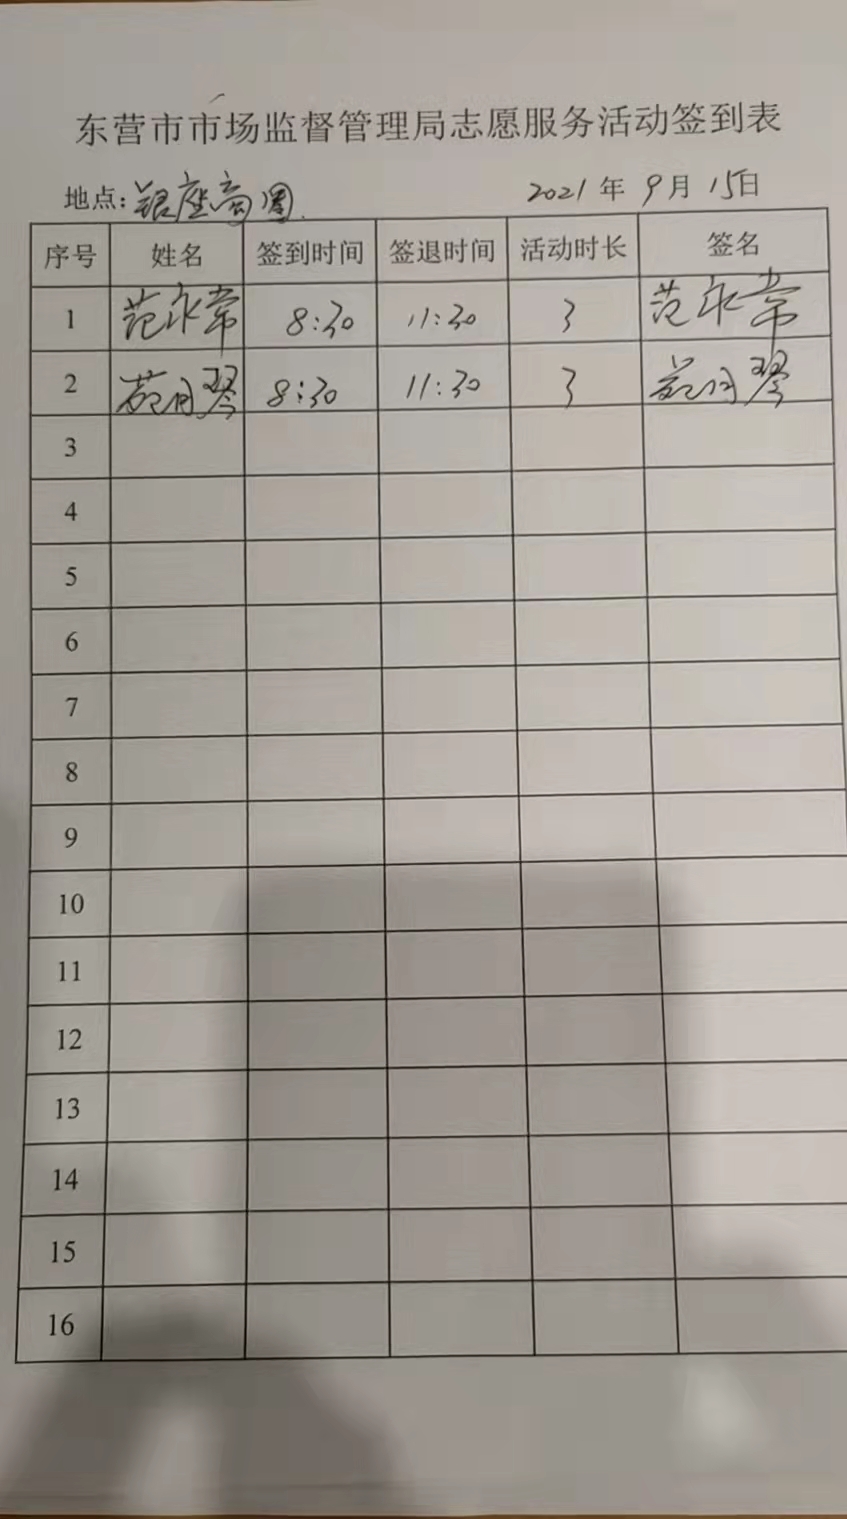 东营市市场监督管理局志愿服务活动签到表
地点:银座商圈 2021年9月15日
序号 姓名 签到时间 签退时间 活动时长 签名
1 范永常 8:30 11:30 3 范永常
2 范月琴 8:30 11:30 3 范月琴
3
4
5
6
7
8
9
10
11
12
13
14
15
16